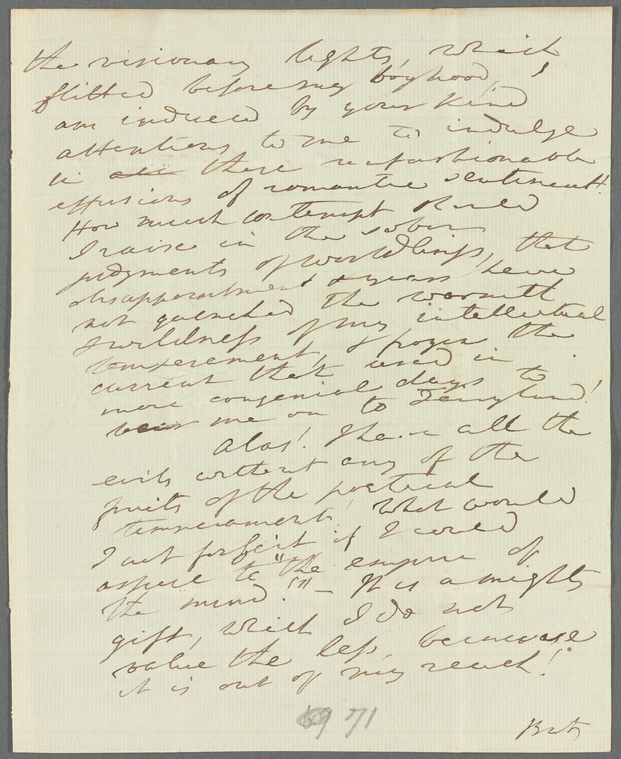 the visionary lights, which
flitted before my boyhood, I
am induced by your kind
attentions to me to indulge
in these unfashionable
effusions of romantic sentiment.
How much contempt should
I raise in the sober
judgments of worldlings, that
disappointment & years have
not quenched the warmth
& wildness of my intellectual
temperament, & frozen the
current that used in
more congenial days to
bear me on to Fairyland!
Alas! I have all the
evils without any of the
fruits of the poetical
temperament. What would
I not forfeit if I could
aspire to "the empire of
the mind!" — It is a mighty
gift, which I do not
value the less, because
it is out of my reach!
69 71
But